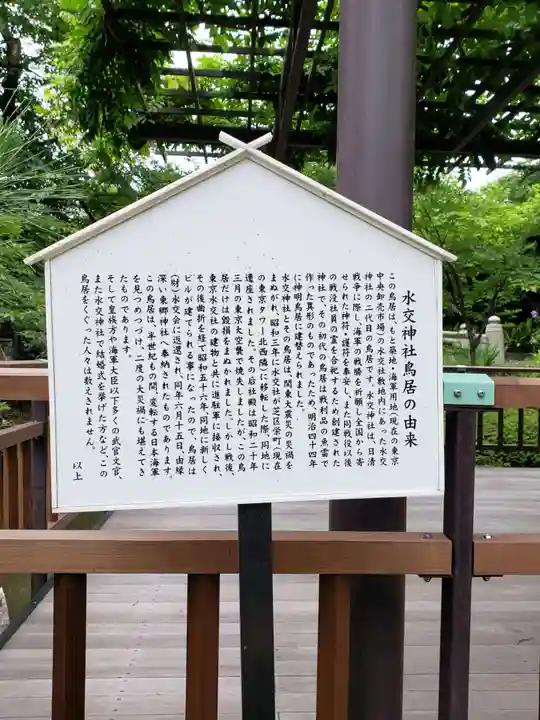 水交神社鳥居の由来
この鳥居は、もと築地の海軍用地(現在の東京
中央卸売市場)の水交社敷地内にあった水交
神社の二代目の鳥居です。水交神社は、日清
戦争に際し、海軍の戦勝を祈願し全国から寄
せられた神符・護符を奉安し、また同戦役以後
の戦役社員の霊を合祀するため創建された
神社で、その初代の鳥居は戦利品の魚雷で
作った異形のものであったため、明治四十四年
に神明鳥居に建替えられました。
水交神社とその鳥居は、関東大震災の災禍を
まぬがれ、昭和三年に水交社が芝区栄町(現在
の東京タワー北西隣)に移転した際、同地に
遷座されました。その后社殿は昭和二十年
三月の東京大空襲で焼失しましたが、この鳥
居だけは毀損をまぬかれました。しかし戦後、
東京水交社の建物と共に進駐軍に接収され、
その後曲折を経て昭和五十六年、同地に新しく
ビルが建てられる事になったので、鳥居は
(財)水交会に返還され、同年六月十五日由縁
深い東郷神社へ奉納されたものであります。
この鳥居は、半世紀もの間、変転する日本海軍
を見つめつづけ、二度の大災禍にも堪えてき
たものであります。
そして皇族方や海軍大臣以下多くの武官文官、
また水交神社で結婚式を挙げた方など、この
鳥居をくぐった人々は数えきれません。
以上